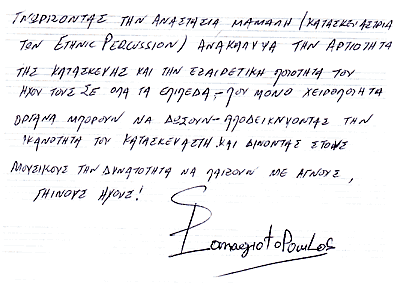 ΓΝΩΡΙΖΟΝΤΑΣ ΤΗΝ ΑΝΑΣΤΑΣΙΑ ΜΑΜΑΛΗ (ΚΑΤΑΣΚΕΥΑΣΤΡΙΑ
ΤΩΝ ETHNIC PERCUSSION) ΑΝΑΚΑΛΥΨΑ ΤΗΝ ΑΡΤΙΟΤΗΤΑ
ΤΗΣ ΚΑΤΑΣΚΕΥΗΣ ΚΑΙ ΤΗΝ ΕΞΑΙΡΕΤΙΚΗ ΠΟΙΟΤΗΤΑ ΤΟΥ
ΗΧΟΥ ΤΟΥΣ ΣΕ ΟΛΑ ΤΑ ΕΠΙΠΕΔΑ,- ΠΟΥ ΜΟΝΟ ΧΕΙΡΟΠΟΙΗΤΑ
ΟΡΓΑΝΑ ΜΠΟΡΟΥΝ ΝΑ ΔΩΣΟΥΝ - ΑΠΟΔΕΙΚΝΥΟΝΤΑΣ ΤΗΝ
ΙΚΑΝΟΤΗΤΑ ΤΟΥ ΚΑΤΑΣΚΕΥΑΣΤΗ ΚΑΙ ΔΙΝΟΝΤΑΣ ΣΤΟΥΣ
ΜΟΥΣΙΚΟΥΣ ΤΗΝ ΔΥΝΑΤΟΤΗΤΑ ΝΑ ΠΑΙΖΟΥΝ ΜΕ ΑΓΝΟΥΣ,
ΓΗΙΝΟΥΣ ΗΧΟΥΣ!
Panagiotopoulos